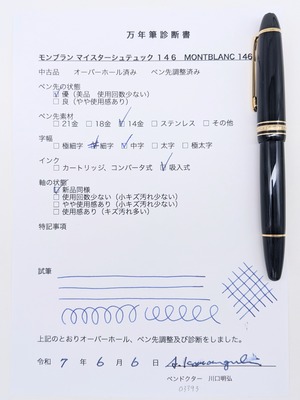 万年筆診断書
モンブラン マイスターシュテュック 146 MONTBLANC 146
中古品 オーバーホール済み ペン先調整済み
ペン先の状態
☑優（美品 使用回数少ない）
□良（やや使用感あり）
ペン先素材
□21金 □18金 ☑14金 □ステンレス □その他
字幅
□極細字 □細字 ☑中字 □太字 □極太字
インク
□カートリッジ、コンバータ式 ☑吸入式
軸の状態
☑新品同様
□使用回数少ない（小キズ汚れ少ない）
□やや使用感あり（小キズ汚れ少ない）
□使用感あり（キズ汚れ多い）
特記事項
試筆
上記のとおりオーバーホール、ペン先調整及び診断をしました。
令和 7 年 6 月 6 日
ペンドクター 川口明弘